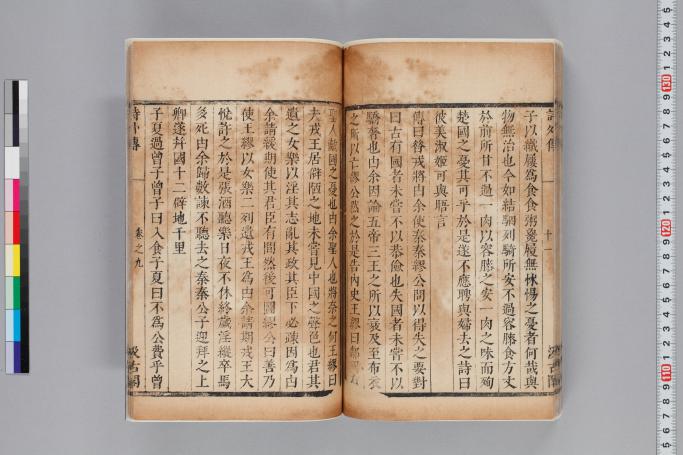 詩外傳
十一
汲古閣
子以織屨爲食食粥毚履無怵惕之憂者何哉與
物無治也今如結駟列騎所安不過容膝食方丈
於前所甘不過一肉以容膝之安一肉之味而殉
楚國之憂其可乎於是遂不應聘與婦去之詩曰
彼美淑姬可與晤言
傳曰昔戎將由余使秦秦繆公問以得失之要對
曰古有國者未嘗不以恭儉也失國者未嘗不以
驕奢也由余因論五帝三王之所以衰及至布衣
之所以亡繆公然之於是告內史王繆曰鄰國有
聖人敵國之憂也由余聖人也將奈之何王繆曰
夫戎王居僻陋之地未嘗見中國之聲色也君其
遺之女樂以淫其志亂其政其臣下必疎因爲由
余請緩期使其君臣有間然後可圖繆公曰善乃
使王繆以女樂二列遺戎王爲由余請期戎王大
悅許之於是張酒聽樂日夜不休終歲淫縱卒馬
多死由余歸數諫不聽去之秦秦公子迎拜之上
卿遂幷國十二辟地千里
子夏過曾子曾子曰入食子夏曰不爲公費乎曾
詩外傳
卷之九
汲古閣